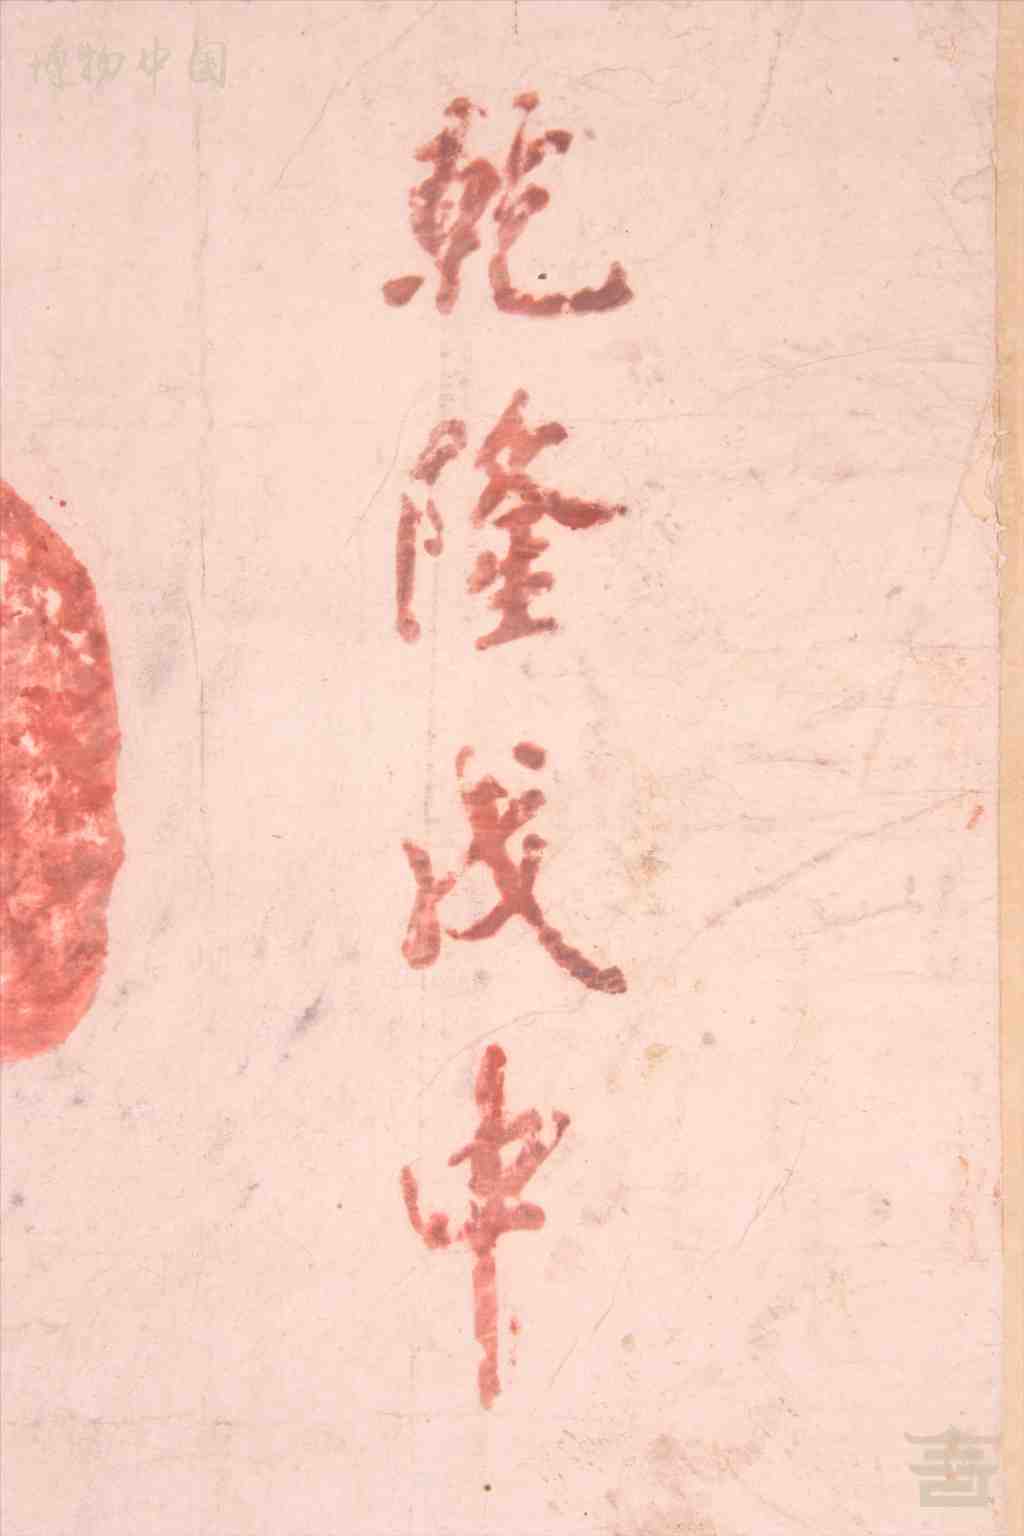 博物中国
乾隆戊申